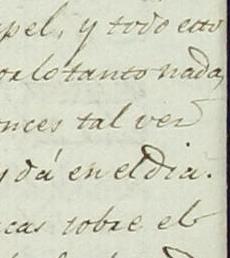 pel, y todo esto
or lo tanto nada,
onces tal vez
y dá en el dia.
cas sobre el